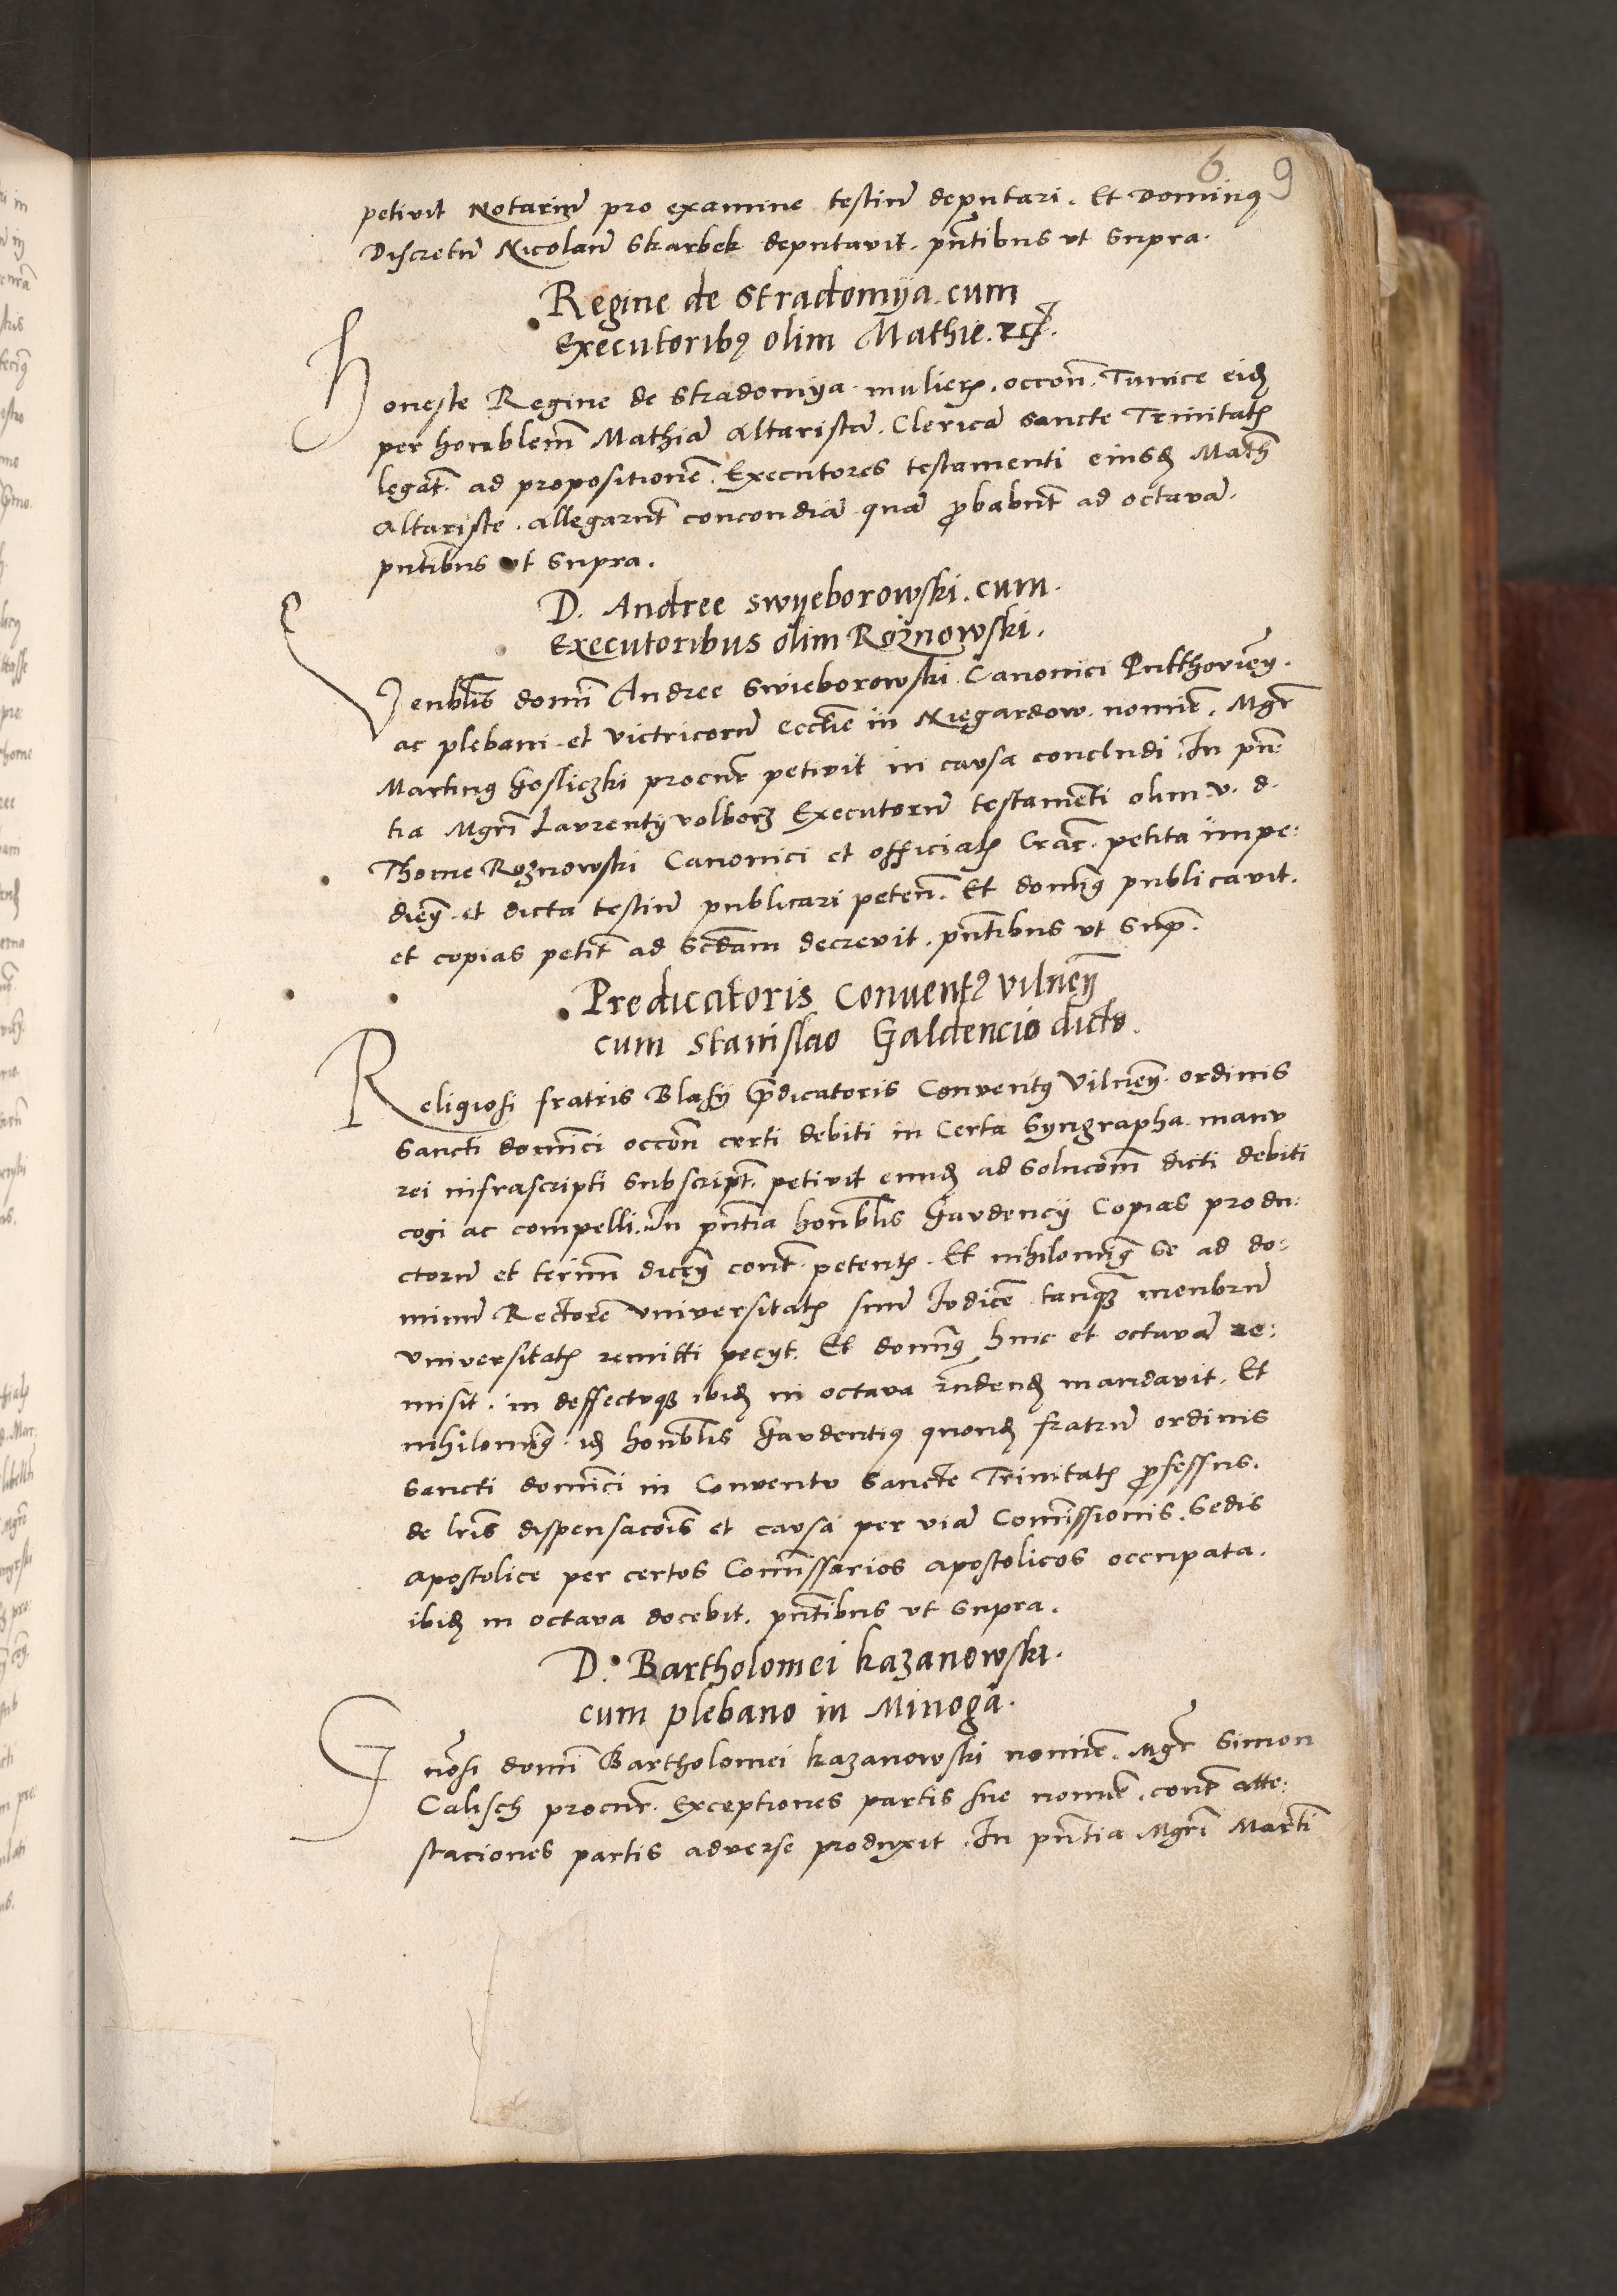 6 9
petivit Notariũ pro examine testiũ deputari. Et Dominus
Discretũ Nicolaũ Skarbek deputavit. pñtibus ut supra.
Regine de Stradomÿa. cum
Executoribꝰ olim Mathie. etc.
Honeste Regine de Stradomÿa mulieris. occoñ. Tunice eidẽ
per honblem̃ Mathiã Altaristã. Clericã Sancte Trinitatis
legat. ad propositionẽ. Executores testamenti eiusdẽ Math
Altariste. allegarũt concordiã quã ꝓbabũt ad octavã.
pñtibus ut supra.
D. Andree Swÿeborowski. cum.
Executoribus olim Roznowski.
Venblis domĩ Andree Swieborowski Canonici
ac plebani et victricorũ eccl̃ie in Niegardow. nomĩe. Mgr̃
Martinꝰ Gosliczki procur̃ petivit in causa concludi. In pñ:
tia Mgr̃i Laurentÿ Volborz Executorũ testamẽti olim v. d.
Thome Roznowski Canonici et officialis Crac̃. petita impe:
dieñ. et dicta testiũ publicari peteñ. Et domĩꝰ publicavit.
et copias petit̃ ad Scdam decrevit. pñtibus ut supr̃.
Predicatoris Conventꝰ Vilneñ
cum Stanislao Galdencio dicto.
Religiosi fratris Blasÿ p̃dicatoris Conventꝰ Vilneñ. ordinis
Sancti domĩci occoñ certi debiti in Certa Syngrapha. manu
rei infrascripti Subscript̃. petivit eundẽ ad Solucoem̃ dicti debiti
cogi ac compelli. In pñtia honblis Gaudencÿ Copias produ:
ctorũ et termĩ diceñ cont̃. petentis. Et nihilominꝰ Se ad do:
minũ Rectorẽ Universitatis suũ Iudicẽ tanqꝫ menbrũ
Universitatis remitti pecÿt. Et domĩꝰ hinc et octavã re:
misit. in deffectuqꝫ ibidẽ in octava r̃ndendẽ mandavit. Et
nihilominꝰ. idẽ honblis Gaudentiꝰ quondã fratrũ ordinis
Sancti domĩci in Conventu Sancte Trinitatis ꝓfessus.
de lr̃is dispensacõis et causa per viã Comĩssionis. Sedis
apostolice per certos Comĩssarios apostolicos occupata.
ibidẽ in octava docebit. pñtibus ut supra.
D. Bartholomei Kazanowski.
cum plebano in Minoga.
Gñosi domĩ Bartholomei Kazanowski nomĩe. Mgr̃ Simon
Calisch procur̃. Exceptiones partis sue nomĩe. cont̃ atte:
staciones partis adverse produxit. In pñtia Mgr̃i Marti